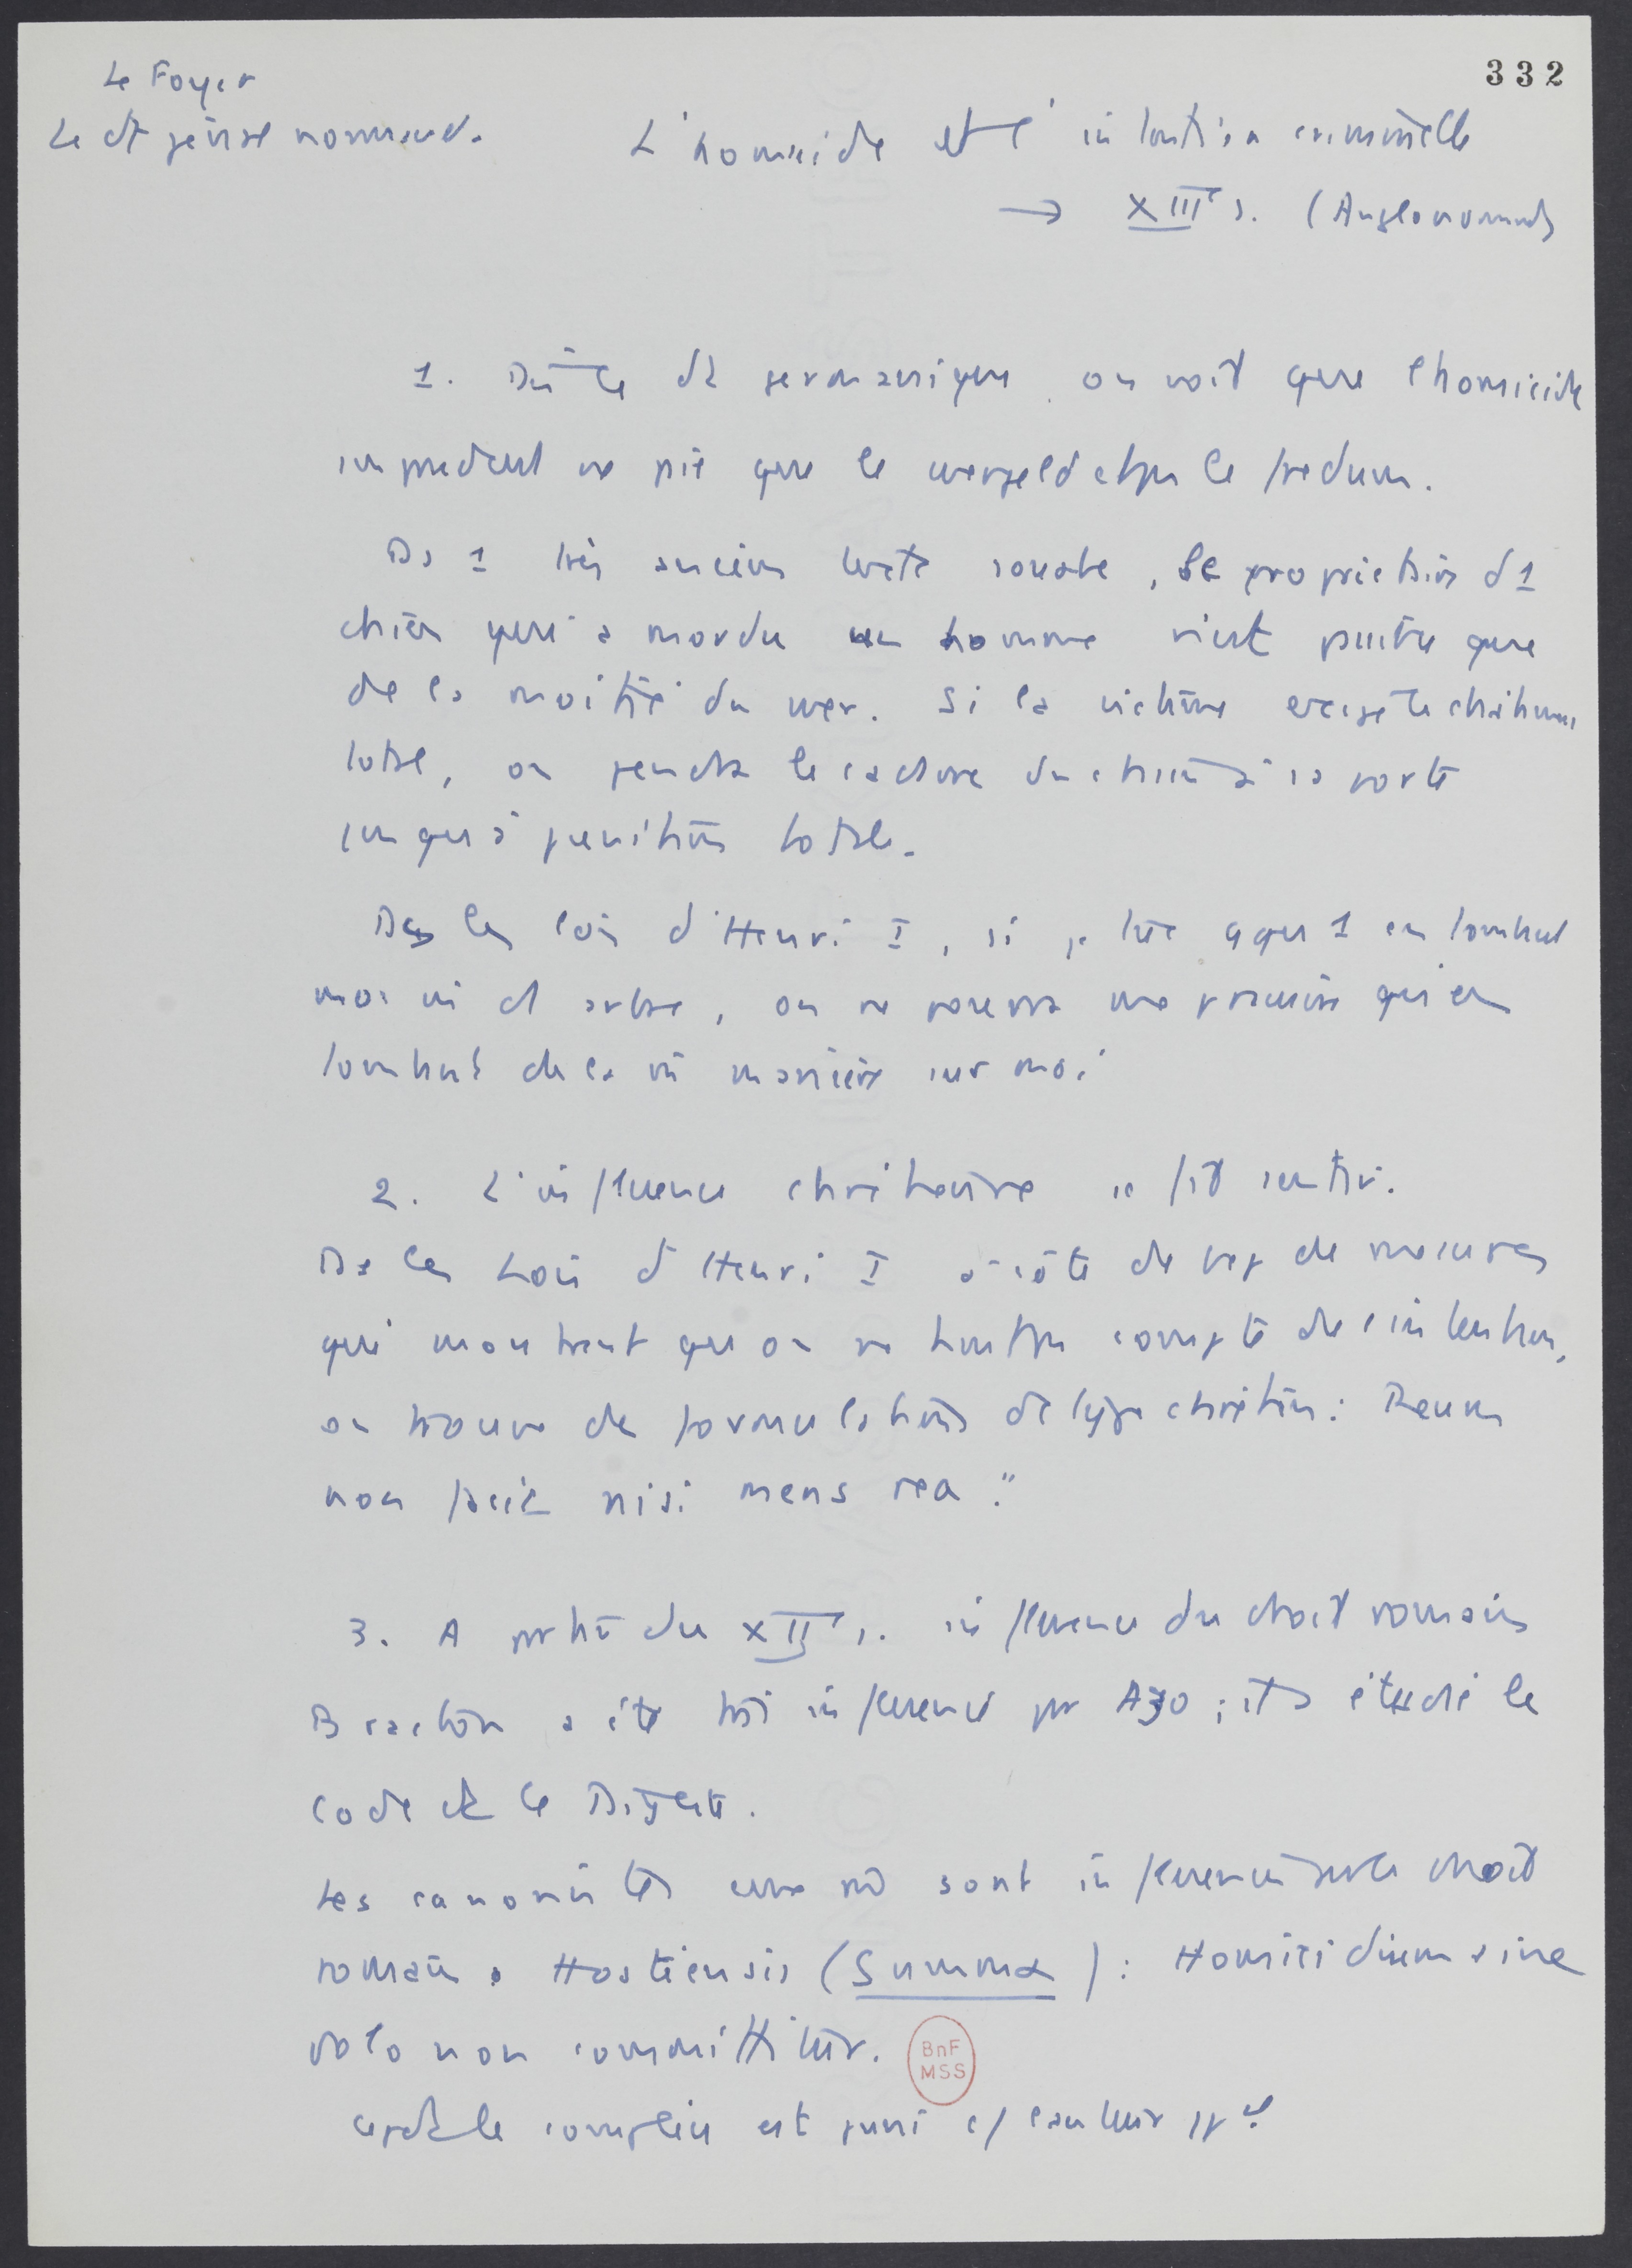 332
Le Foyer
Le dt pénal normand.
L'homicide et l'intention criminelle
→ XIIIe s. (Anglonormand)
1. Ds le dt germanique on voit que l'homicide
imprudent ne paie que le wergeld et pas le fredum.
Ds 1 très ancien texte, le propriétaire d'1
chien qui a mordu un homme n'est puni que
de la moitié du wer. Si la victime exige le châtiment
total, on pendra le cadavre du chien à sa porte
jusqu'à punition totale.
Ds les lois d'Henri I, si je tue qqu'1 en tombant
moi m d'1 arbre, on ne pourra me punir qu'en
tombant de la m manière sur moi
2. L'influence chrétienne se fait sentir.
Ds les Lois d'Henri I à côté de de mesures
qui montrent qu'on ne tient pas compte de l'intention,
on trouve des formulations de type chrétien : Reum
non facit nisi mens rea."
3. A partir du XIIe s. influence du droit romain
Bracton a été très influencé par Azo ; il a étudié le
Code et le Digeste.
Les canonistes eux m sont influencés par le droit
romain. Hostiensis (Summa) : Homicidium sine
dolo non committitur.
BnF
MSS
cepdt le complice est puni c/ l'auteur ppal